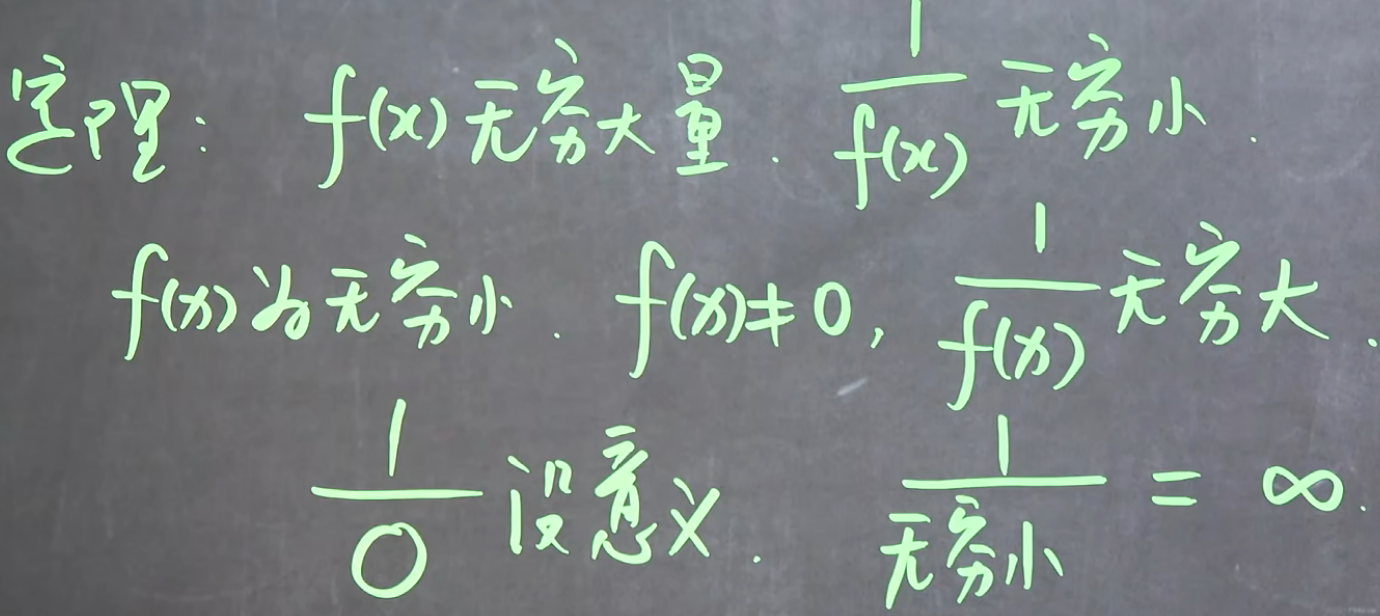 定理: f(x)无穷大量. 1/f(x) 无穷小.
f(x)为无穷小. f(x)≠0, 1/f(x) 无穷大.
1/0 没意义. 1/无穷小 = ∞.